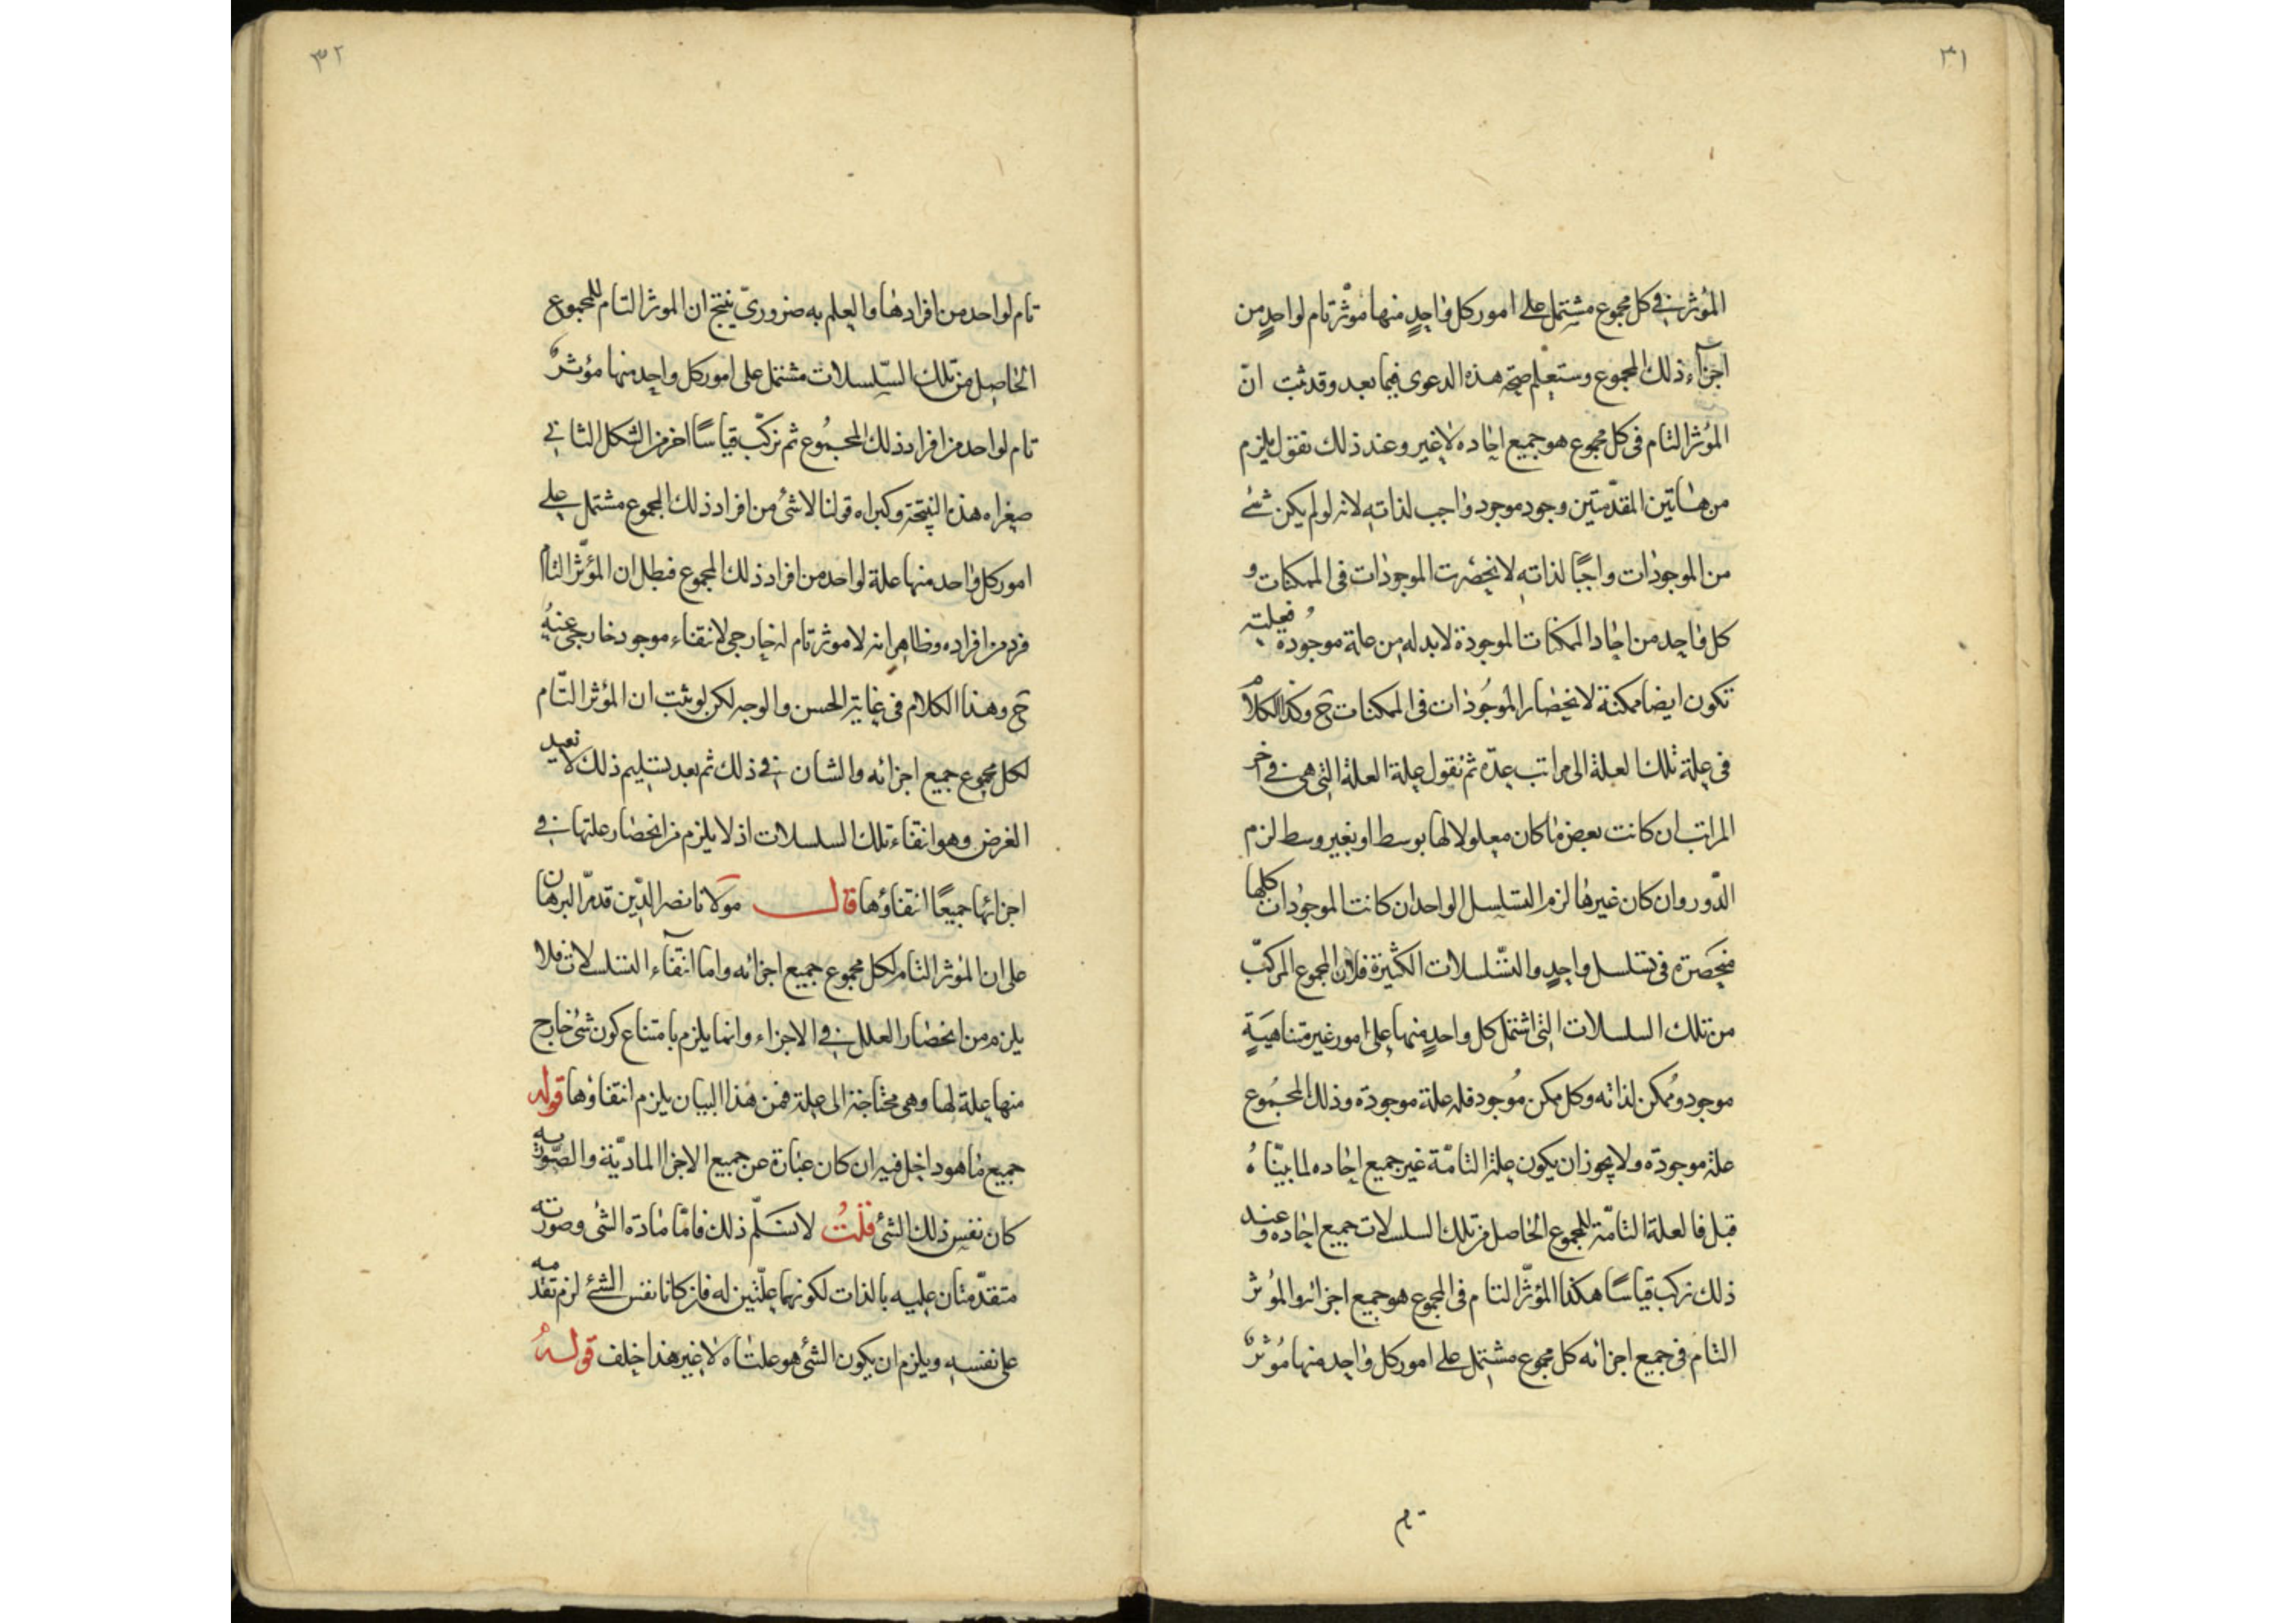 ٣١
المؤثر في كل مجموع مشتمل على امور كل واحدٍ منها مؤثر تام لواحدٍ من
اجزآء ذلك المجموع وستعلم صحة هذه الدعوى فيما بعد وقد ثبت انّ
المؤثر التام فى كل مجموع هو جميع احاده لا غير وعند ذلك نقول يلزم
من هاتين المقدّمتين وجود موجود واجب لذاته لانه لو لم يكن شئ
من الموجودات واجبًا لذاته لانحصرت الموجودات فى الممكنات و
كل واحد من احاد الممكنات الموجودة لا بد له من علة موجودة فعليته
تكون ايضا ممكنة لانحصار الموجودات فى الممكنات ح وكذا الكلام
فى علة تلك العلة الى مراتب عدّة ثم نقول علة العلة التى هى فى اخر
المراتب ان كانت بعض ما كان معلولا لها بوسط او بغير وسط لزم
الدّور وان كان غيرها لزم التسلسل الواحد ان كانت الموجودات كلها
منحصرة فى تسلسل واحدٍ والتسلسلات الكثيرة فلان المجموع المركّب
من تلك السلسلات التى اشتمل كل واحدٍ منها على امور غير متناهيةٍ
موجود وممكن لذاته وكل ممكن موجود فله علة موجودة وذلك المجموع
علة موجودة ولا يجوز ان يكون علة التامّة غير جميع احاده لما بيّناه
قبل فالعلة التامّة للمجموع الحاصل من تلك السلسلات جميع احاده وعند
ذلك نركب قياسًا هكذا المؤثّر التام فى المجموع هو جميع اجزائه والمؤثر
التام فى جميع اجزائه كل مجموع مشتمل على امور كل واحد منها مؤثرٌ
تام
٣٢
تام لواحد من افرادها والعلم به ضروريّ ينتج ان الموثر التام للمجموع
الحاصل من تلك السّلسلات مشتمل على امور كل واحد منها مؤثرٌ
تام لواحد من افراد ذلك المجموع ثم نركّب قياسًا اخر من الشكل الثانى
صغراه هذه النتيجة وكبراه قولنا لا شئ من افراد ذلك المجموع مشتمل على
امور كل واحد منها علة لواحد من افراد ذلك المجموع فبطل ان المؤثّر التام
فرد من افراده وظاهر انه لا موثر تام له خارجى لانتفاء موجود خارجى عنه
ح وهذا الكلام فى غاية الحسن والوجه لكن لو ثبت ان المؤثر التّام
لكل مجموع جميع اجزائه والشان فى ذلك ثم بعد تسليم ذلك لا نعيد
الغرض وهو انتفاء تلك السلسلات اذ لا يلزم من انحصار علتها فى
اجزائها جميعًا انتفاؤها قال مولانا نصر الدّين قد مرّ البرهان
على ان المؤثر التام لكل مجموع جميع اجزائه واما انتفآء التسلسلات فلا
يلزم من انحصار العلل فى الاجزاء وانما يلزم بامتناع كون شئ خارج
منها علة لها وهى محتاجة الى علة فمن هذا البيان يلزم انتفاؤها قوله
جميع ما هو داخل فيه ان كان عبارة عن جميع الاجزا الماديّة والصّورية
كان نفس ذلك الشئ قلتُ لا نسَلّم ذلك فامّا مادة الشئ وصورته
متقدّمتان عليه بالذات لكونهما علّتين له فان كانا نفس الشئ لزم تقدّمه
على نفسه ويلزم ان يكون الشئ هو علتاه لا غير هذا خلف قولهُ